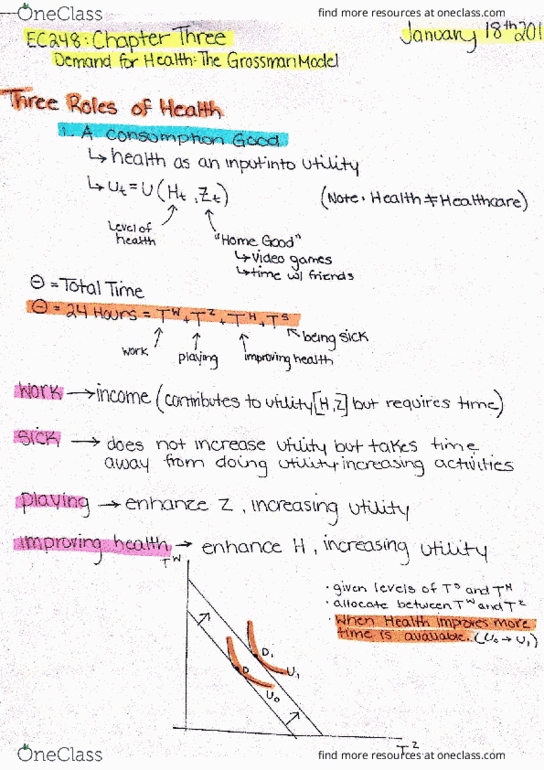 OneClass
find more resources at oneclass.com
EC248: Chapter Three
January 18th 201
Demand for Health: The Grossman Model
Three Roles of Health
1. A Consumption Good
↳ health as an input into utility
↳ Ut = U (Ht, Zt)
(Note: Health ≠ Healthcare)
Level of health
"Home Good"
↳ Video games
↳ time w/ friends
Θ = Total Time
Θ = 24 Hours = T^W + T^Z + T^H + T^S
being sick
work
playing
improving health
work → income (contributes to utility [H,Z] but requires time)
sick → does not increase utility but takes time
away from doing utility increasing activities
playing → enhance Z, increasing utility
improving health → enhance H, increasing utility
T^W
· given levels of T^S and T^H
· allocate between T^W and T^Z
· When Health improves more
time is available. (U0 → U1)
D1
U1
D
U0
T^Z
OneClass
find more resources at oneclass.com